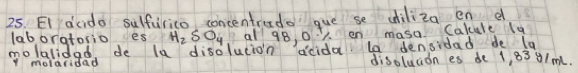 25. El ácido sulfúrico concentrado que se diliza en el
laboratorio es H₂SO₄ al 98,0 % en masa. Calcule la
molalidad de la disolución ácida. la densidad de la
y molaridad disolución es de 1,83 g/mL.